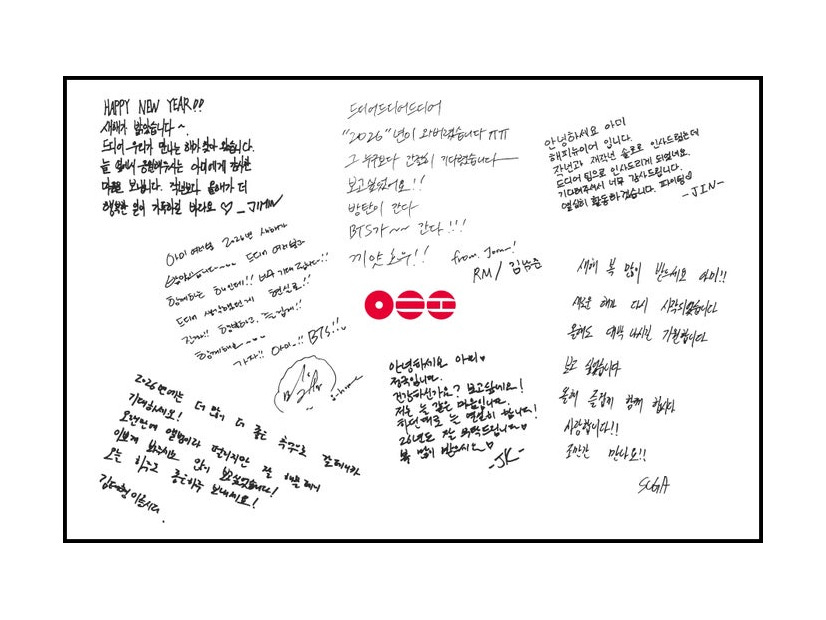 HAPPY NEW YEAR!!
새해가 밝았습니다~.
드디어 우리가 만나는 해가 찾아 왔습니다.
늘 옆에서 응원해주시는 아미에게 감사한
마음을 보냅니다. 작년보다 올해가 더
행복한 일이 가득하길 바라요 ♡ - JIMIN
드디어드디어드디어
"2026"년이 와버렸습니다 ㅠㅠ
그 누구보다 간절히 기다렸습니다
보고싶었어요!!
방탄이 간다
BTS가~~ 간다!!!
끼얏호우!!
from.
RM / 김남준
안녕하세요 아미
해피뉴이어 입니다.
작년과 재작년 솔로로 인사드렸는데
드디어 팀으로 인사드리게 되었네요.
기다려주셔서 너무 감사드립니다.
열심히 활동하겠습니다. 화이팅♡
-JIN-
아미 여러분 2026년 새해가
밝았습니다~~~ 드디어 여러분과
함께하는 해인데!! 너무 기대됩니다!!
드디어 생각했던게 현실로!!
진짜!! 행복하고, 즐겁게!!
함께해요~~~
가자!! 아미!! BTS!!
새해 복 많이 받으세요 아미!!
새로운 해가 다시 시작되었습니다
올해도 대박나시길 기원합니다
보고 싶었습니다
올해 즐겁게 함께 합시다
사랑합니다!!
조만간 만나요!!
SUGA
2026년에는 더 많이 더 좋은 추억으로
기대하세요!
오랜만에 앨범이라 떨리지만 잘
이쁘게 봐주시고 많이 보고싶었습니다!
오늘 하루도 좋은하루 보내세요!
김태형 이름시다.
안녕하세요 아미♡
정국입니다.
건강하신가요? 보고싶네요!
저는 늘 같은 마음입니다.
하던대로 늘 열심히 합니다!
26년도 잘 부탁드립니다♡
복 많이 받으시오♡
-JK-